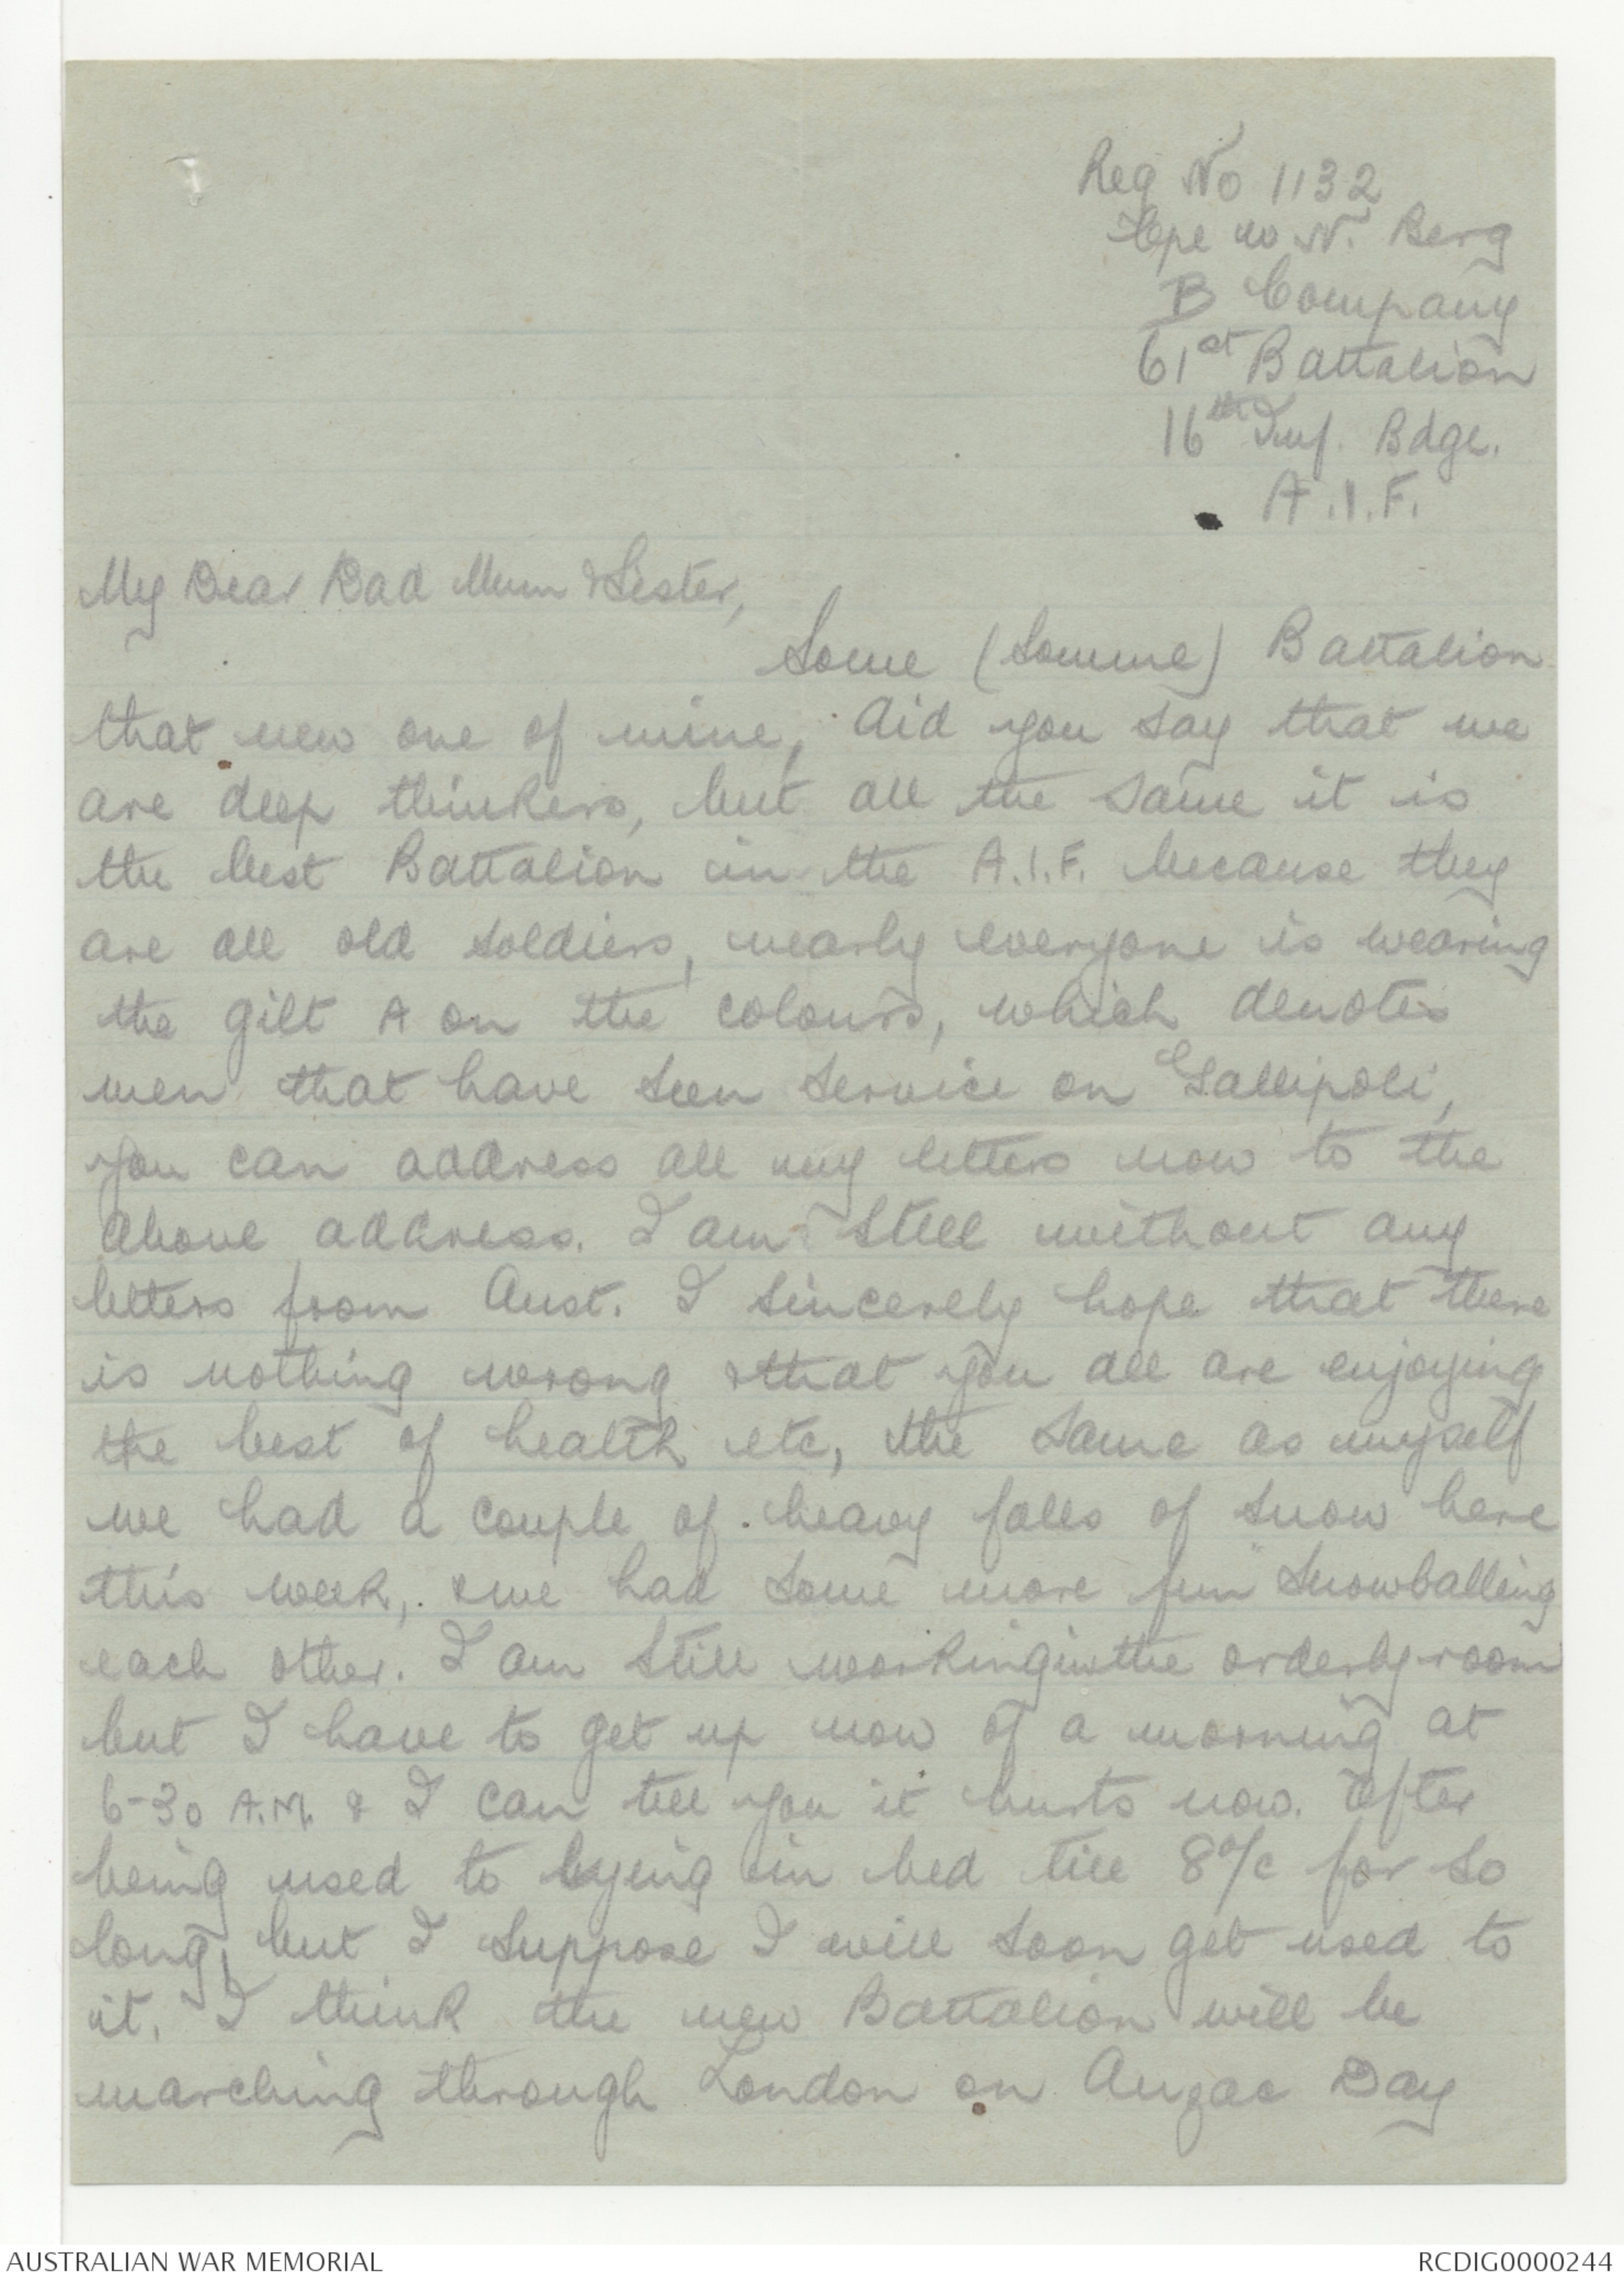 Reg No 1132
Cpl W N. Berg
B Company
61st Battalion
16th Inf. Bdge.
A.I.F.
My Dear Dad Mum & Lester,
Some (Somme) Battalion
that new one of mine, did you say that we
are deep thinkers, but all the same it is
the best Battalion in the A.I.F. because they
are all old soldiers, nearly everyone is wearing
the gilt A on the colours, which denotes
men that have seen service on Gallipoli,
you can address all my letters now to the
above address. I am still without any
letters from Aust. I sincerely hope that there
is nothing wrong & that you all are enjoying
the best of health etc, the same as myself
we had a couple of heavy falls of snow here
this week, & we had some more fun snowballing
each other. I am still working in the orderly-room
but I have to get up now of a morning at
6-30 A.M. & I can tell you it hurts now. After
being used to lying in bed till 8 o/c for so
long, but I suppose I will soon get used to
it. I think the new Battalion will be
marching through London on Anzac Day
AUSTRALIAN WAR MEMORIAL
RCDIG0000244